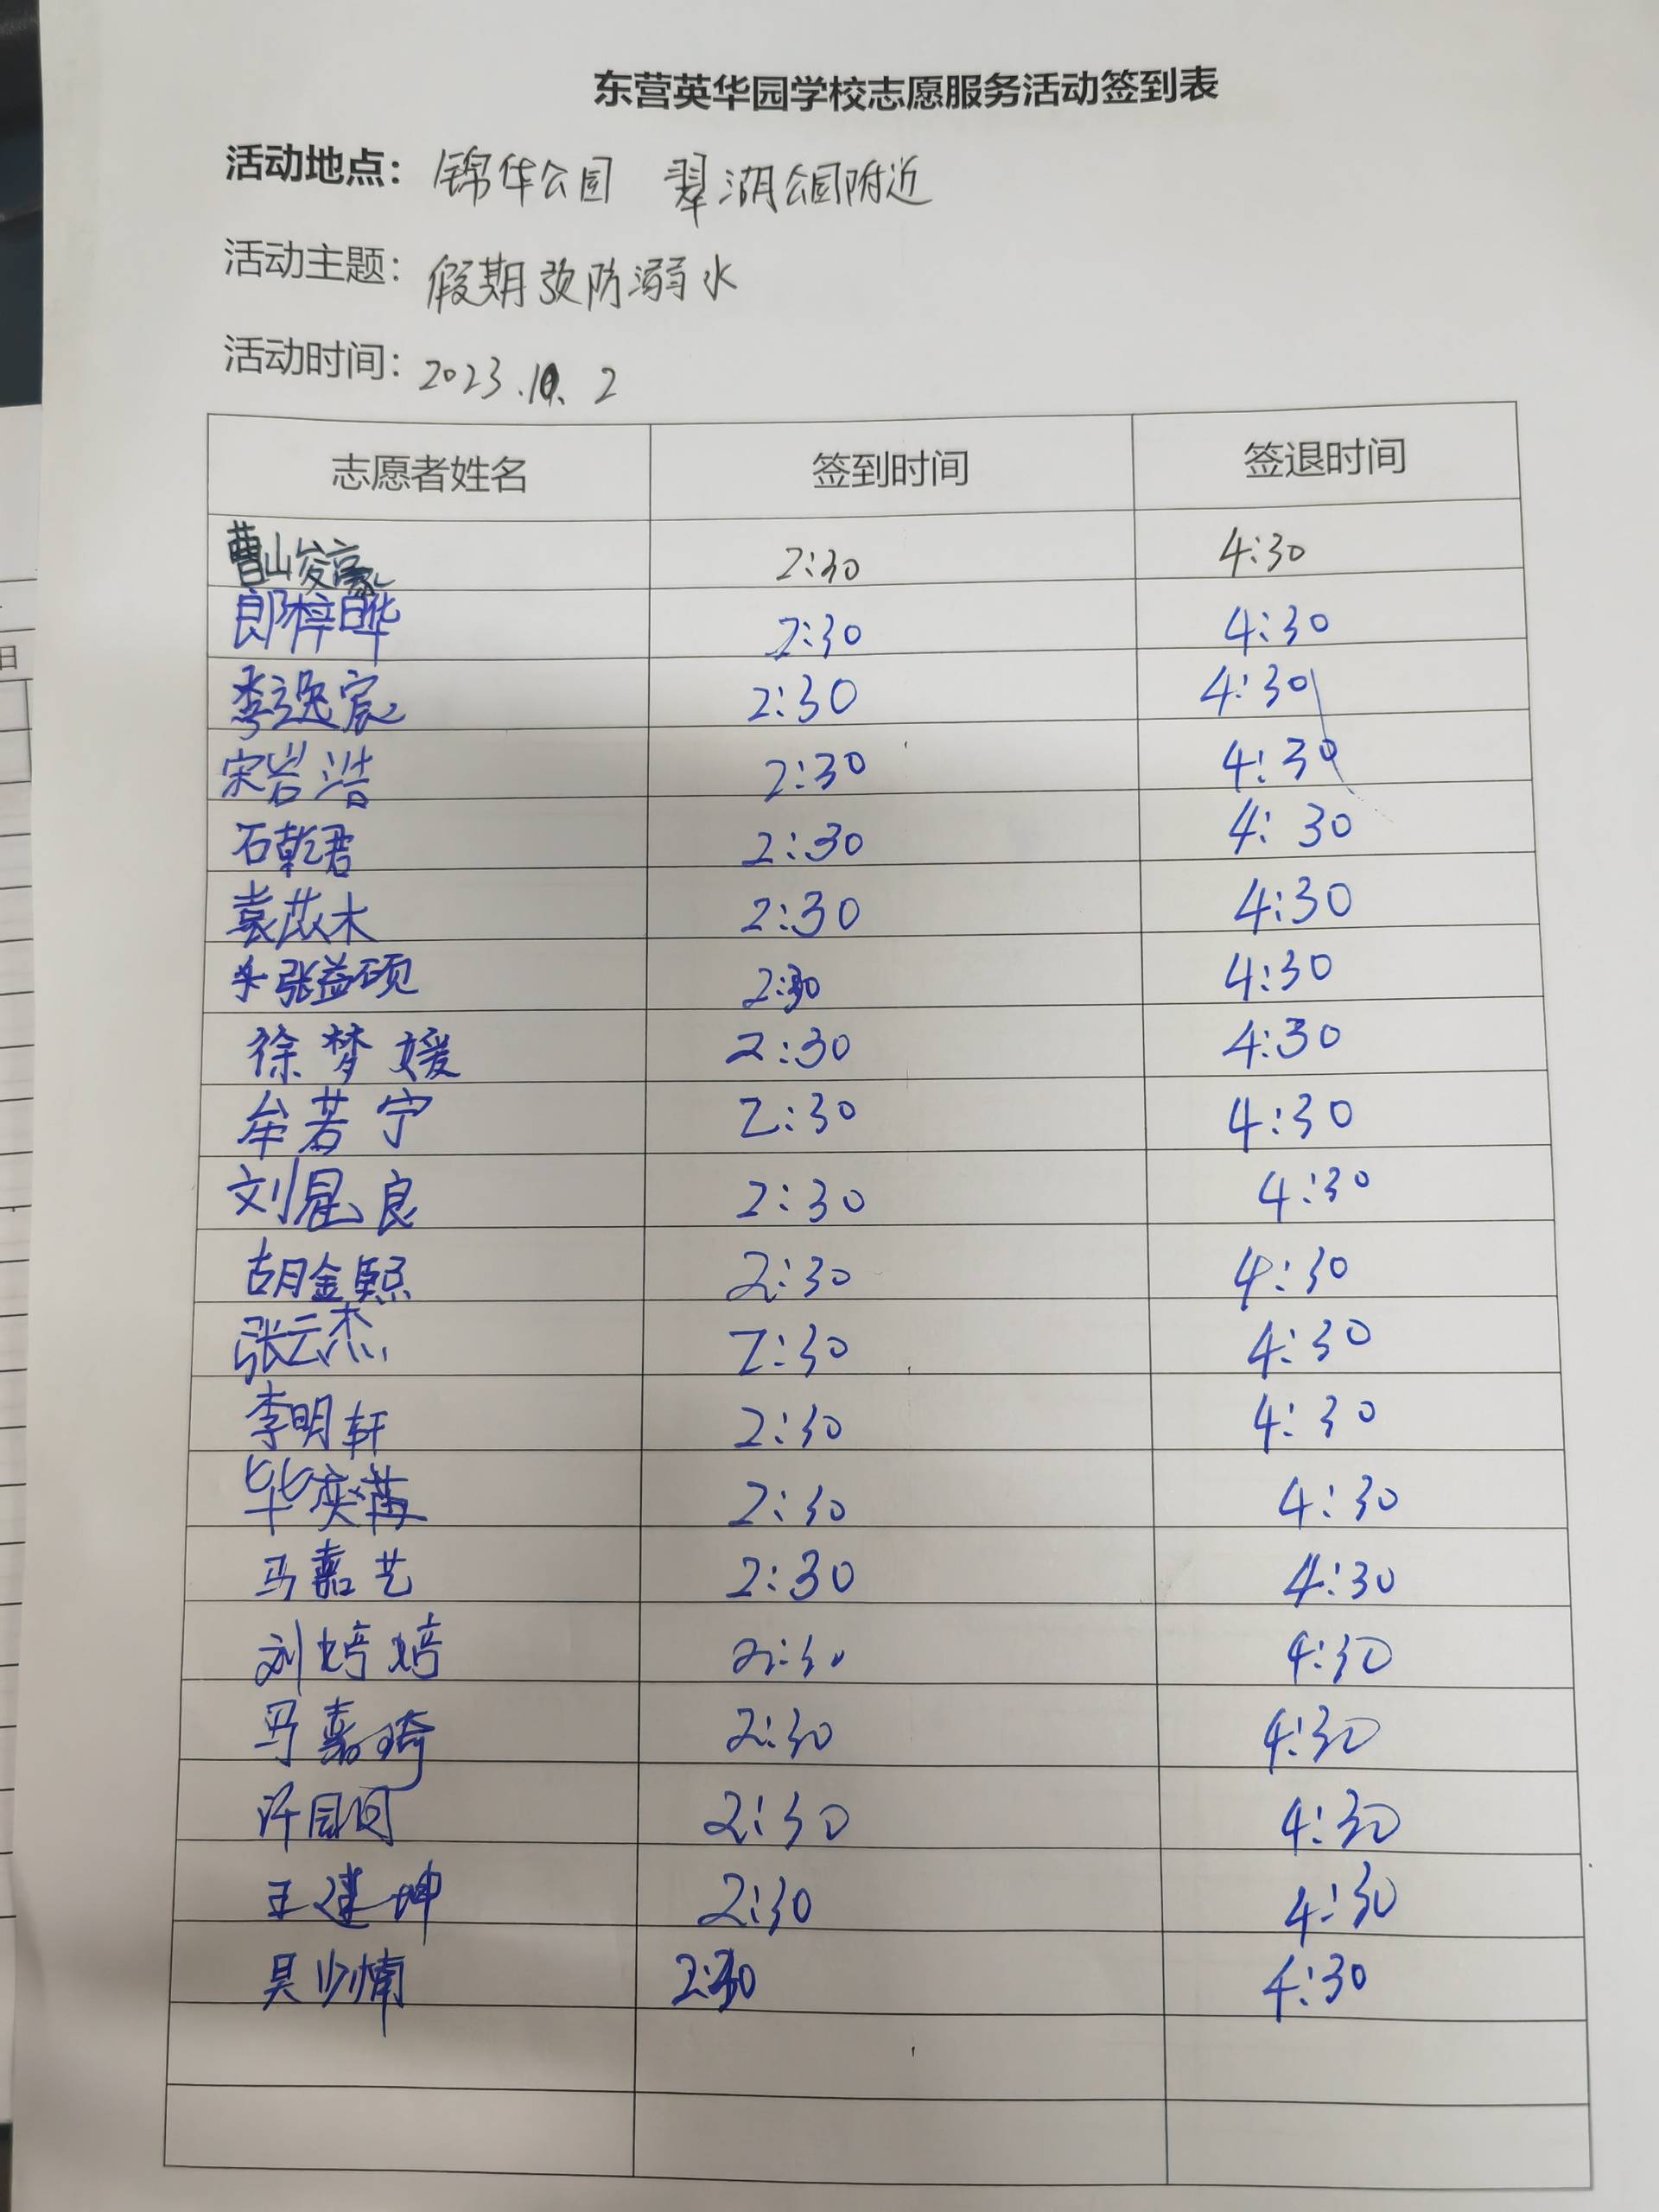 东营英华园学校志愿服务活动签到表
活动地点：锦华公园 翠湖公园附近
活动主题：假期预防溺水
活动时间：2023.10.2
志愿者姓名 签到时间 签退时间
曹山俊豪 2:30 4:30
郎梓晔 2:30 4:30
李逸宸 2:30 4:30
宋岩浩 2:30 4:30
石乾君 2:30 4:30
袁苡木 2:30 4:30
张益硕 2:30 4:30
徐梦媛 2:30 4:30
牟若宁 2:30 4:30
刘星良 2:30 4:30
胡金熙 2:30 4:30
张云杰 2:30 4:30
李明轩 2:30 4:30
毕奕 2:30 4:30
马嘉艺 2:30 4:30
刘婷婷 2:30 4:30
马嘉琦 2:30 4:30
许园园 2:30 4:30
王建坤 2:30 4:30
吴少楠 2:30 4:30